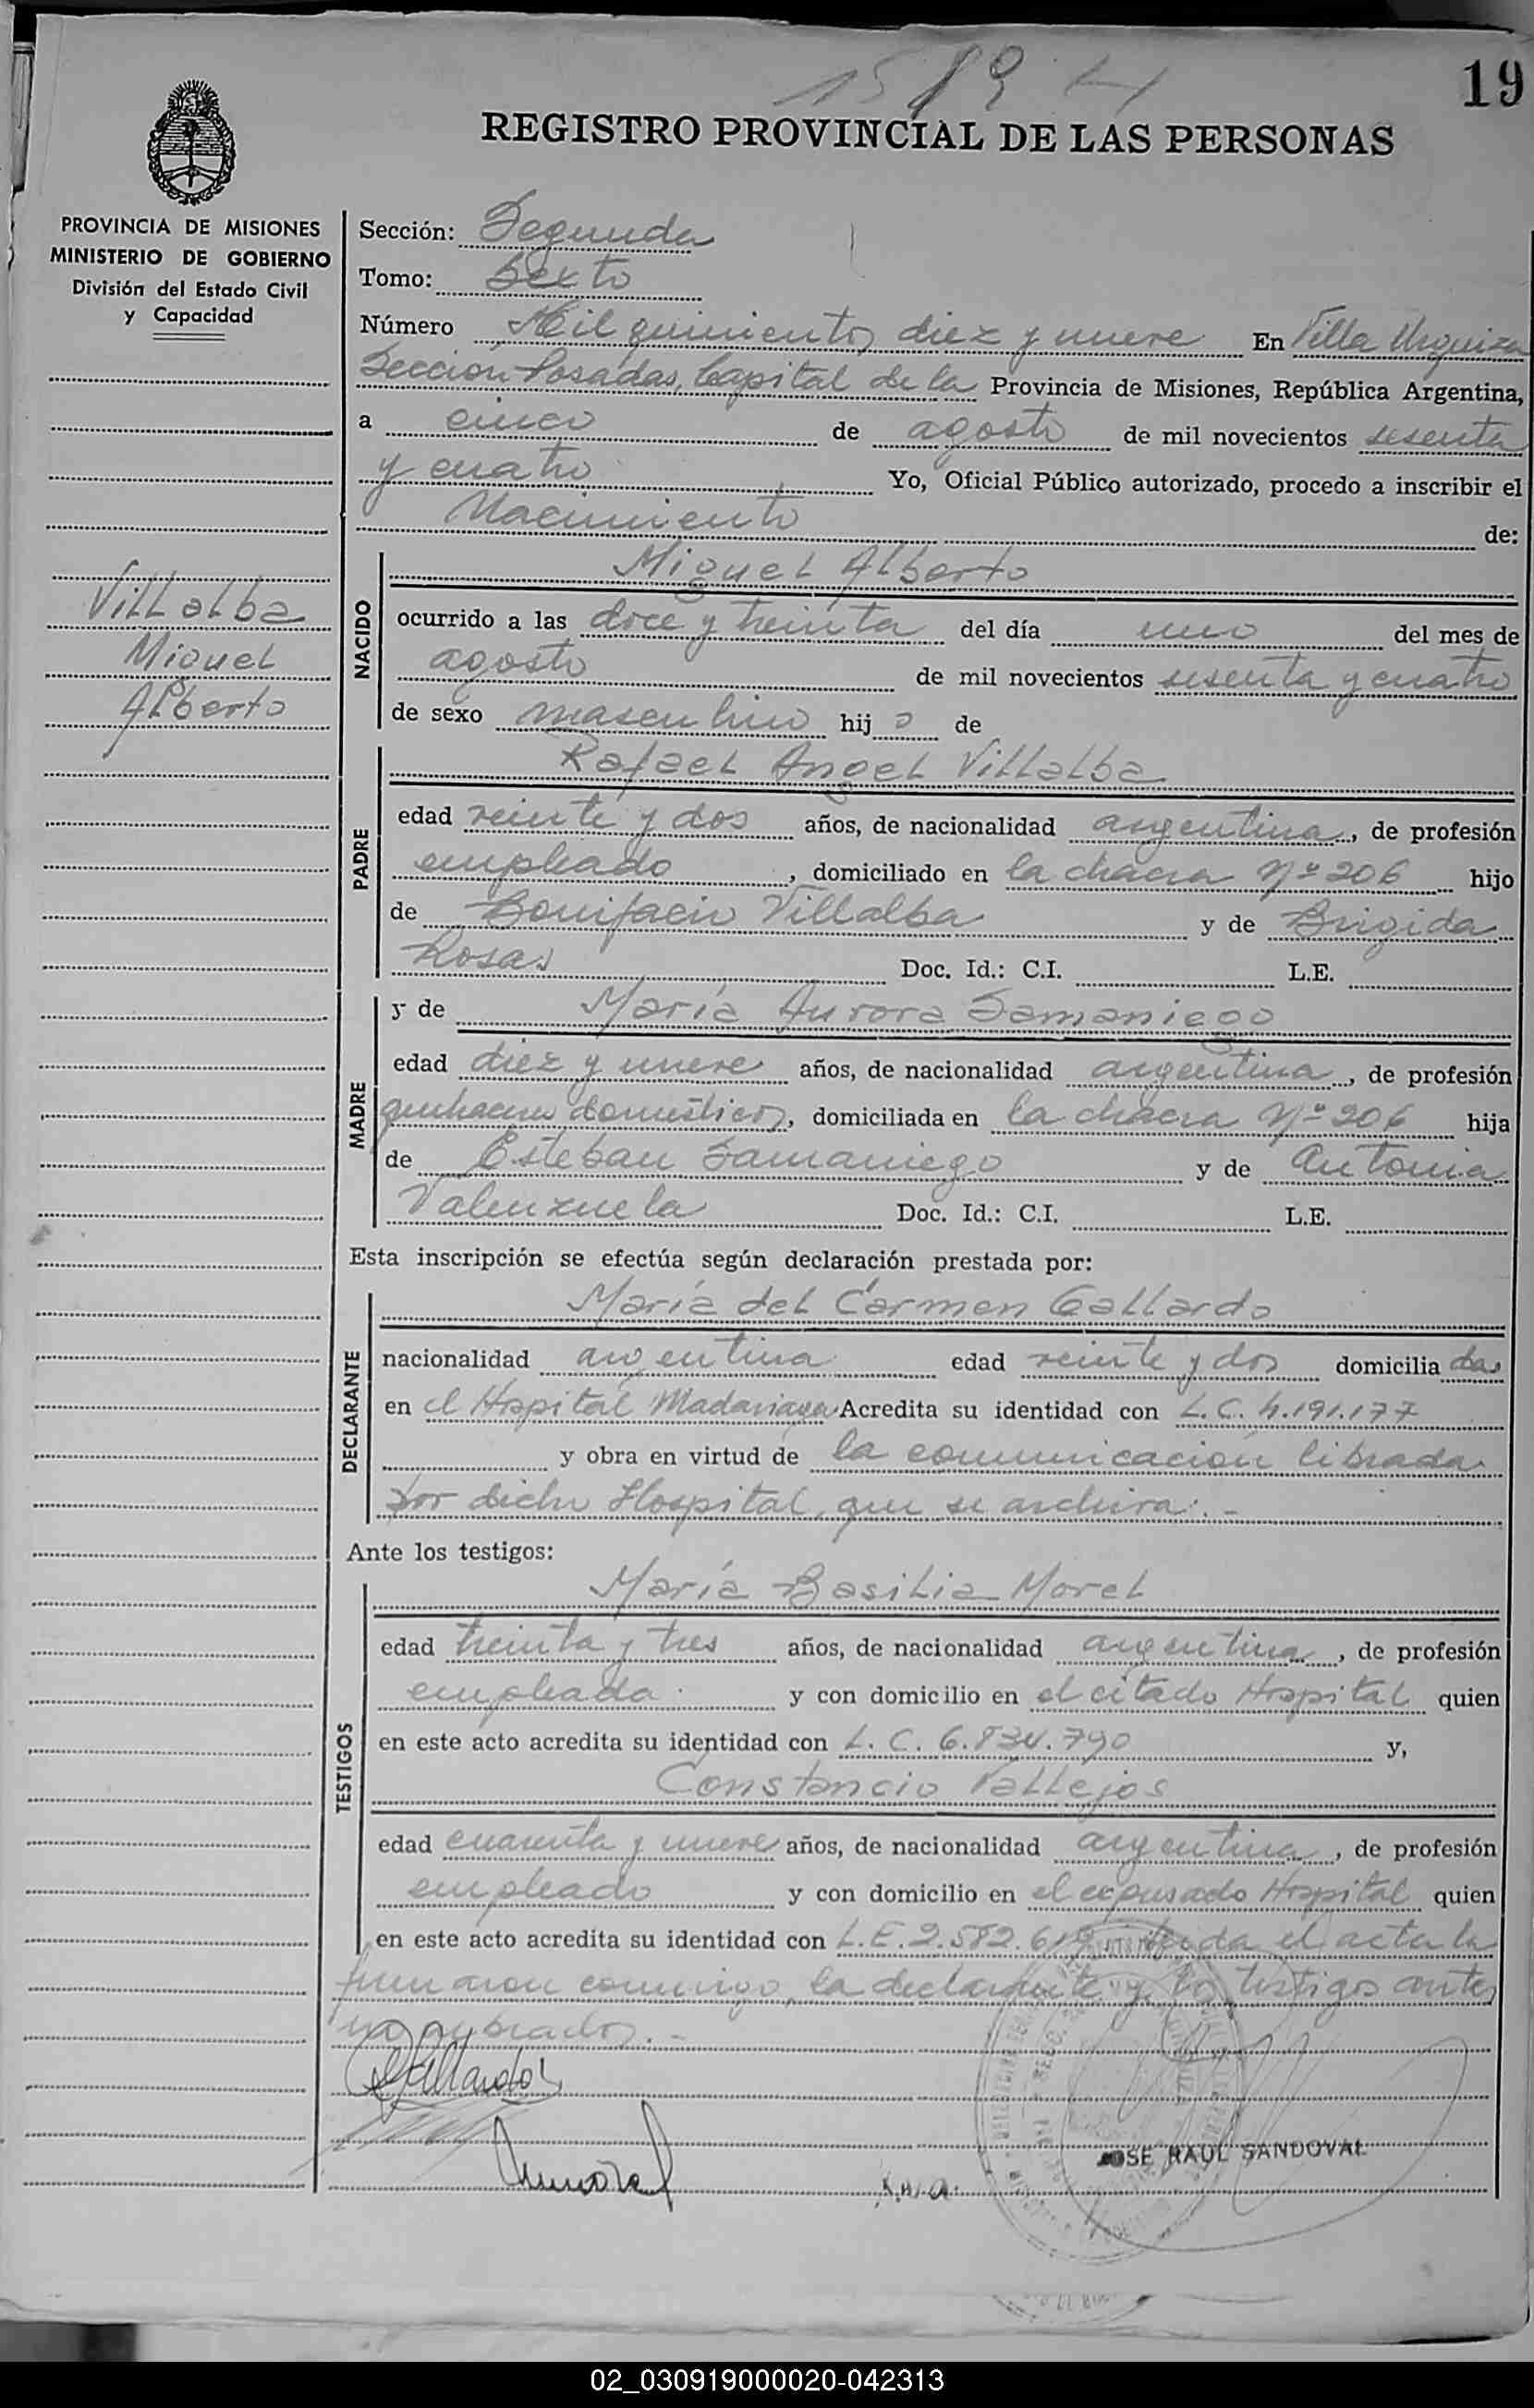 1519 H
19
REGISTRO PROVINCIAL DE LAS PERSONAS
PROVINCIA DE MISIONES
MINISTERIO DE GOBIERNO
División del Estado Civil
y Capacidad
Villalba
Miguel
Alberto
Sección: Segunda
Tomo: Sexto
Número Mil quinientos diez y nueve En Villa Urquiza
Sección Posadas, Capital de la Provincia de Misiones, República Argentina,
a cinco de agosto de mil novecientos sesenta
y cuatro Yo, Oficial Público autorizado, procedo a inscribir el
Nacimiento de:
NACIDO
Miguel Alberto
ocurrido a las doce y treinta del día uno del mes de
agosto de mil novecientos sesenta y cuatro
de sexo masculino hijo de
PADRE
Rafael Angel Villalba
edad veinte y dos años, de nacionalidad argentina, de profesión
empleado, domiciliado en la chacra Nº 206 hijo
de Bonifacio Villalba y de Brigida
Rosas Doc. Id.: C.I. L.E.
MADRE
y de María Aurora Samaniego
edad diez y nueve años, de nacionalidad argentina, de profesión
quehaceres domésticos, domiciliada en la chacra Nº 206 hija
de Esteban Samaniego y de Antonia
Valenzuela Doc. Id.: C.I. L.E.
Esta inscripción se efectúa según declaración prestada por:
DECLARANTE
María del Carmen Gallardo
nacionalidad argentina edad veinte y dos domicilia da
en el Hospital Madariaga Acredita su identidad con L.C. 4.191.177
y obra en virtud de la comunicación librada
por dicho Hospital, que se archiva.-
Ante los testigos:
TESTIGOS
María Basilia Morel
edad treinta y tres años, de nacionalidad argentina, de profesión
empleada y con domicilio en el citado Hospital quien
en este acto acredita su identidad con L.C. 6.834.790 y,
Constancio Vallejos
edad cuarenta y nueve años, de nacionalidad argentina, de profesión
empleado y con domicilio en el expresado Hospital quien
en este acto acredita su identidad con L.E. 2.582.619 leída el acta la
firmaron conmigo, la declarante y los testigos antes
nombrados.-
JOSE RAUL SANDOVAL
02_030919000020-042313